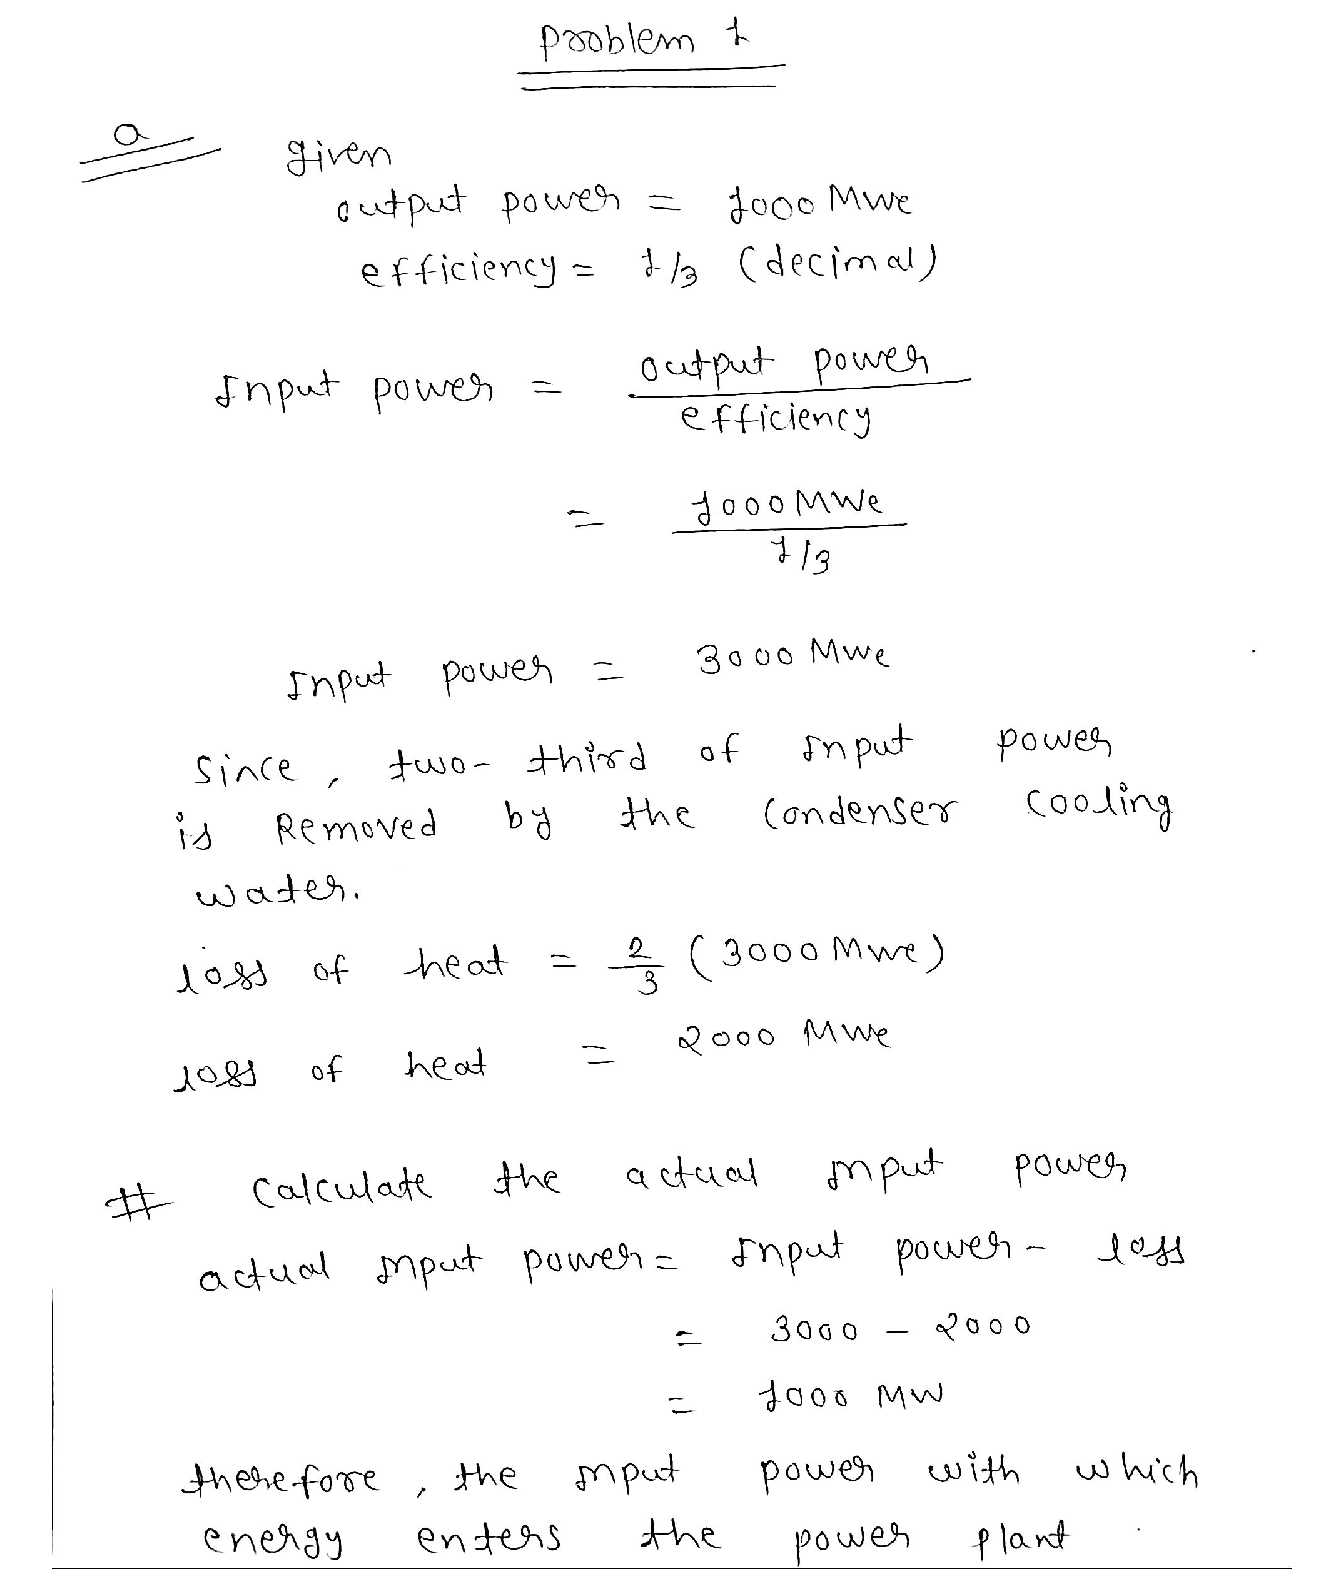 Problem 1
a
given
output power = 1000 MWe
efficiency = 1/3 (decimal)
Input power = output power / efficiency
= 1000 MWe / 1/3
Input power = 3000 MWe
Since, two-third of Input power
is Removed by the condenser cooling
water.
loss of heat = 2/3 (3000 MWe)
loss of heat = 2000 MWe
# Calculate the actual Input power
actual Input power = Input power - loss
= 3000 - 2000
= 1000 MW
therefore, the Input power with which
energy enters the power plant